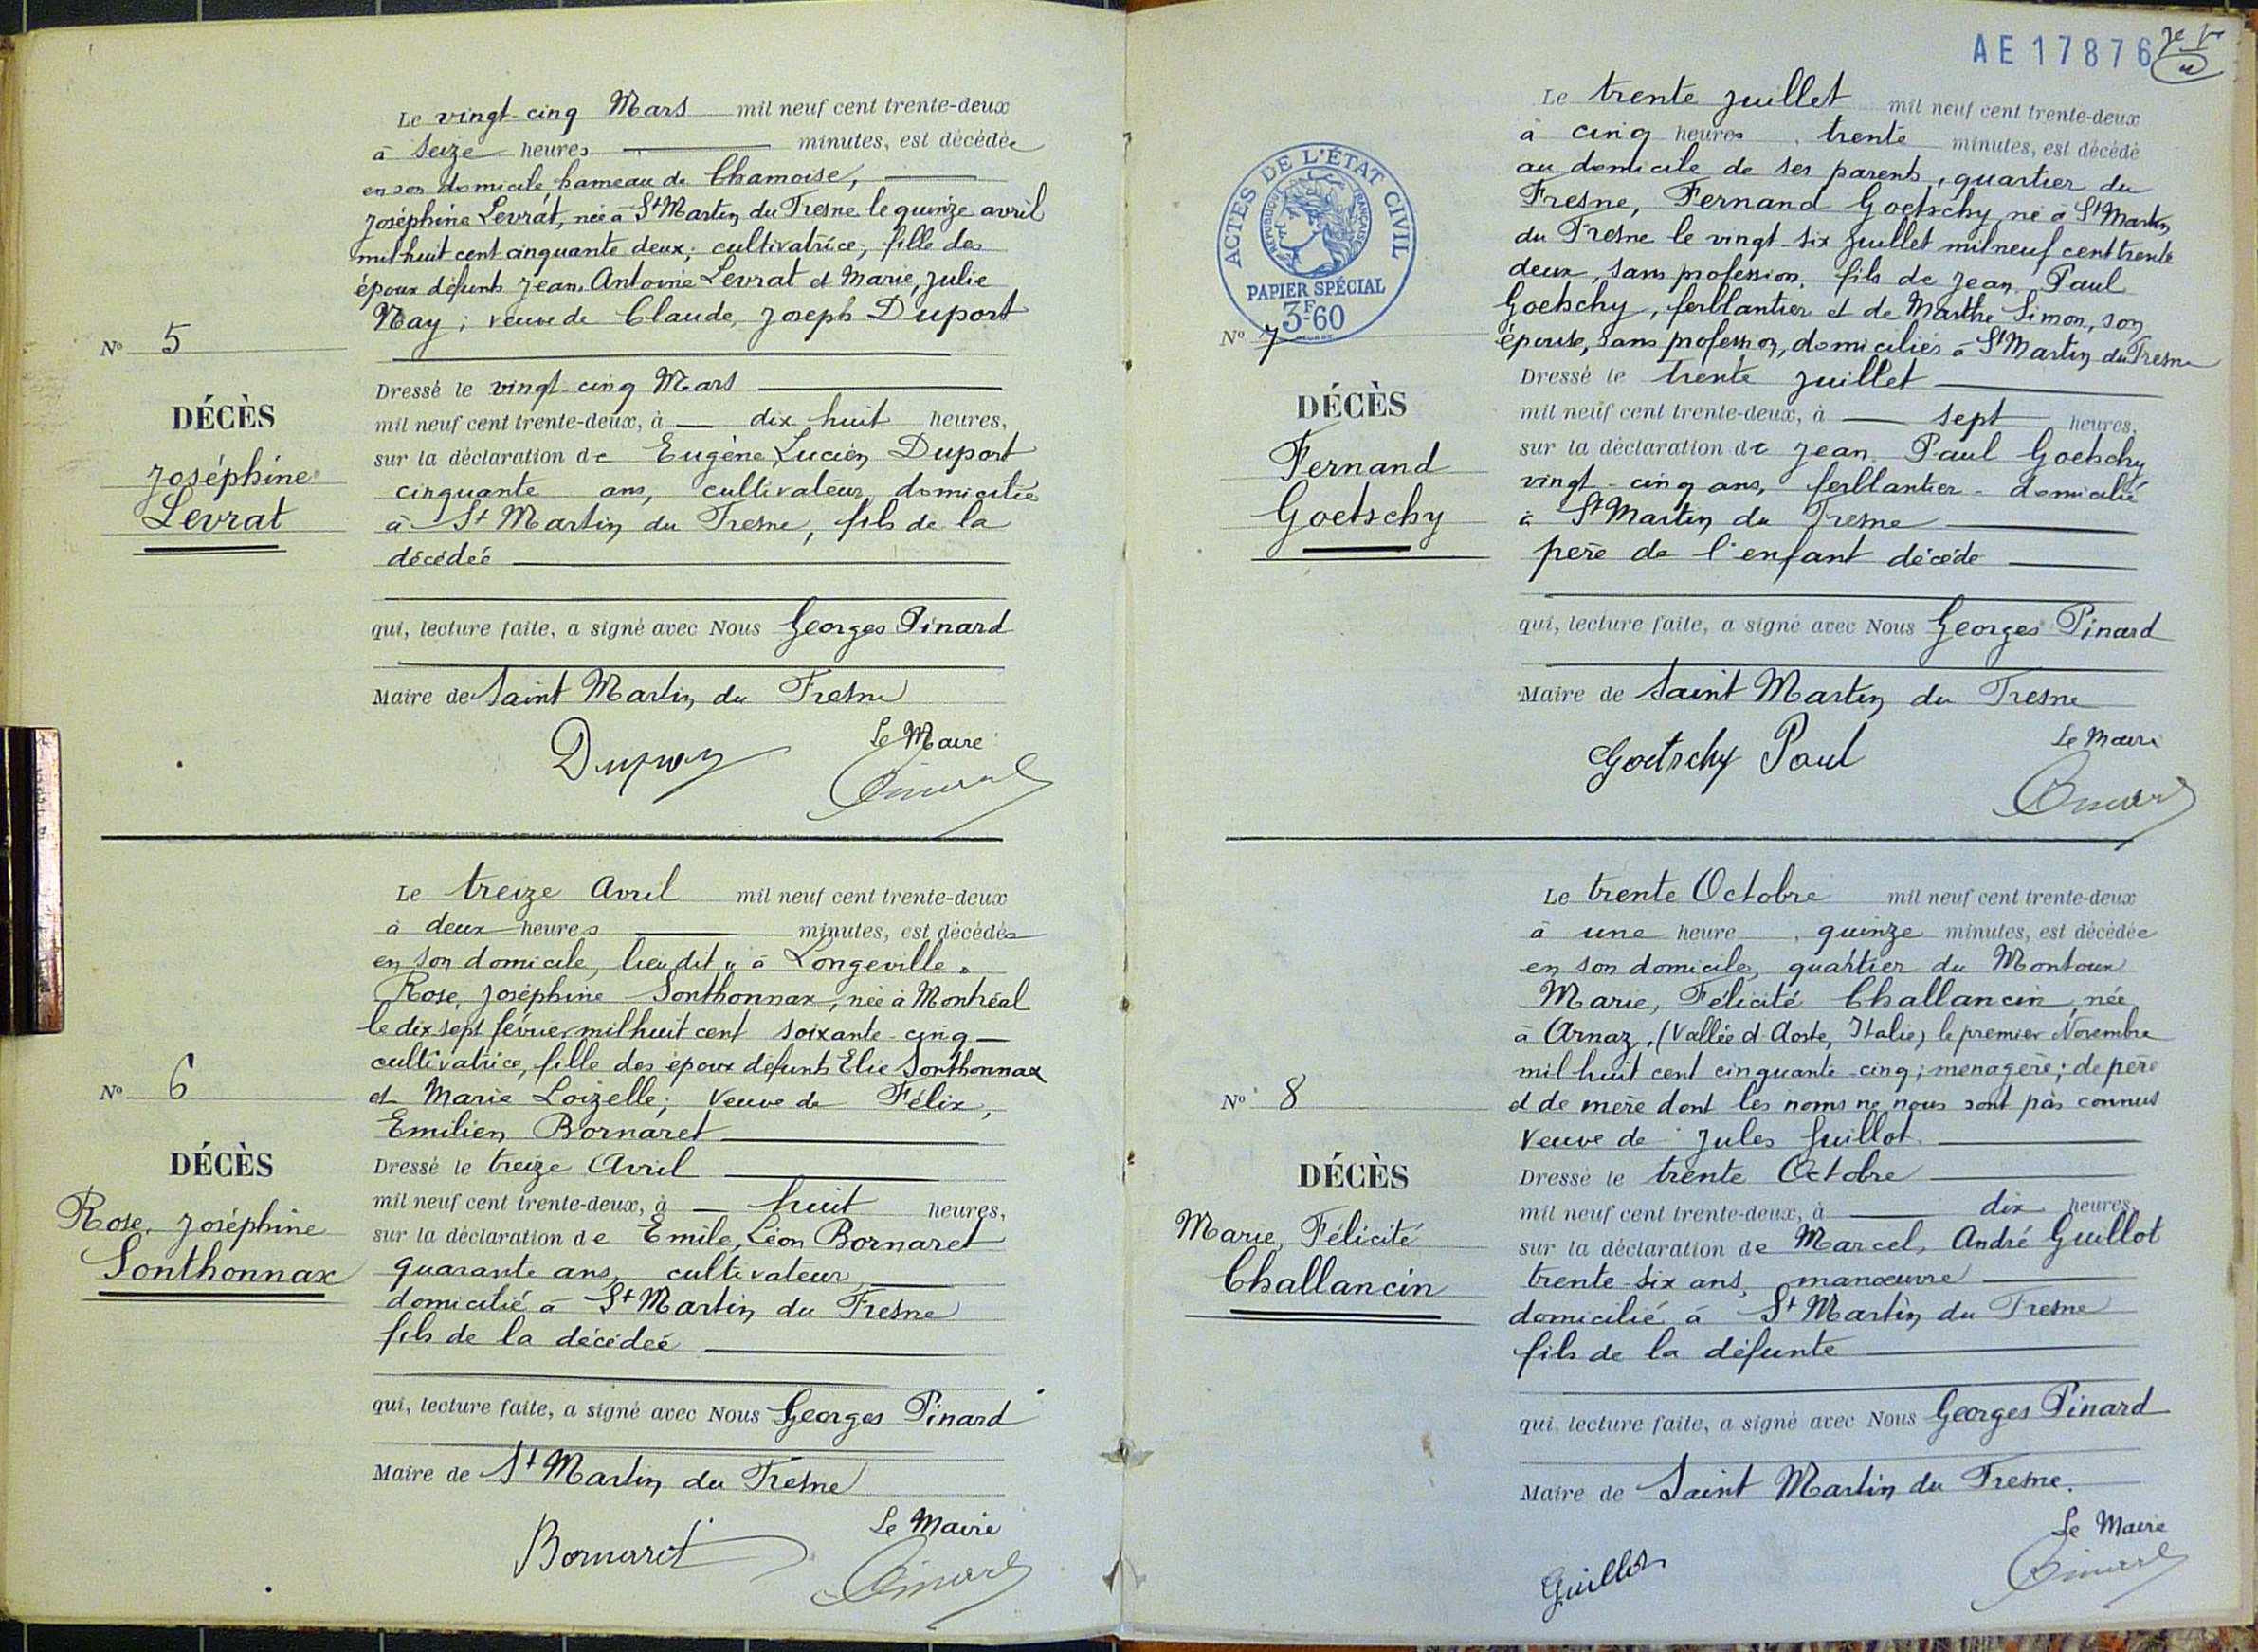 Le vingt-cinq Mars mil neuf cent trente-deux
à seize heures minutes, est décédée
en son domicile, hameau de Chamoise,
Joséphine Levrat, née à St Martin du Fresne le quinze avril
mil huit cent cinquante deux; cultivatrice; fille des
époux défunts Jean, Antoine Levrat et Marie, Julie
Nay; veuve de Claude, Joseph Duport
No 5
Dressé le vingt-cinq Mars
mil neuf cent trente-deux, à dix huit heures,
DÉCÈS
sur la déclaration de Eugène, Lucien Duport
Joséphine
cinquante ans, cultivateur, domicilié
Levrat
à St Martin du Fresne, fils de la
décédée
qui, lecture faite, a signé avec Nous Georges Pinard
Maire de Saint Martin du Fresne
Le Maire
Le treize Avril mil neuf cent trente-deux
à deux heures minutes, est décédée
en son domicile, lieu dit " à Longeville "
Rose, Joséphine Sonthonnax, née à Montréal
le dix sept février mil huit cent soixante-cinq
cultivatrice, fille des époux défunts Elie Sonthonnax
et Marie Loizelle; Veuve de Félix,
No 6
Emilien Bornaret
Dressé le treize Avril
DÉCÈS
mil neuf cent trente-deux, à huit heures,
Rose, Joséphine
sur la déclaration de Emile, Léon Bornaret
Sonthonnax
quarante ans, cultivateur
domicilié à St Martin du Fresne
fils de la décédée
qui, lecture faite, a signé avec Nous Georges Pinard
Maire de St Martin du Fresne
Le Maire
Bornaret
AE 17876
Le trente Juillet mil neuf cent trente-deux
à cinq heures, trente minutes, est décédé
au domicile de ses parents, quartier du
Fresne, Fernand Goetschy, né à St Martin
du Fresne le vingt-six Juillet mil neuf cent trente
deux, sans profession, fils de Jean Paul
Goetschy, ferblantier et de Marthe Simon, son
épouse, sans profession, domiciliés à St Martin du Fresne
ACTES DE L'ÉTAT CIVIL
RÉPUBLIQUE FRANÇAISE
PAPIER SPÉCIAL
3F60
No 7
Dressé le trente Juillet
DÉCÈS
mil neuf cent trente-deux, à sept heures,
Fernand
sur la déclaration de Jean Paul Goetschy
Goetschy
vingt-cinq ans, ferblantier - domicilié
à St Martin du Fresne
père de l'enfant décédé
qui, lecture faite, a signé avec Nous Georges Pinard
Maire de Saint Martin du Fresne
Le Maire
Goetschy Paul
Le trente Octobre mil neuf cent trente-deux
à une heure, quinze minutes, est décédée
en son domicile, quartier du Montoux
Marie, Félicité Challancin, née
à Arnaz, (Vallée d'Aoste, Italie) le premier Novembre
mil huit cent cinquante-cinq; ménagère; de père
et de mère dont les noms ne nous sont pas connus
No 8
Veuve de Jules Guillot.
DÉCÈS
Dressé le trente Octobre
mil neuf cent trente-deux, à dix heures,
Marie, Félicité
sur la déclaration de Marcel, André Guillot
Challancin
trente-six ans, manœuvre
domicilié à St Martin du Fresne
fils de la défunte
qui, lecture faite, a signé avec Nous Georges Pinard
Maire de Saint Martin du Fresne.
Le Maire
Guillot